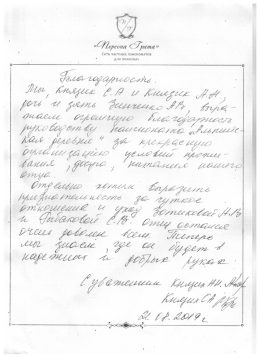 «Персона Грата»
Сеть частных пансионатов
для пожилых
Благодарность.
Мы, Князик С.А и Князик А.Н,
дочь и зять Зинченко А.В, выра-
жаем огромную благодарность
руководству пансионата
деревня" за прекрасную
организацию условий прожи-
вания, досуга, питания нашего
отца.
Отдельно хотим выразить
признательность за чуткое
отношение и уход
и Рыбаковой С.В. отец остался
очень доволен всем. Теперь
мы знаем, где он будет в
надежных и добрых руках.
С уважением Князик А.Н.
Князик С.А
21.08.2019 г.